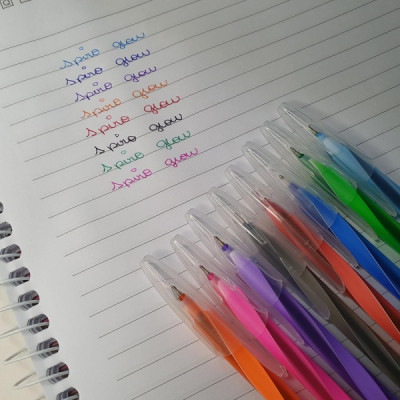 spiro glow
spiro glow
spiro glow
spiro glow
spiro glow
spiro glow
spiro glow
spiro glow